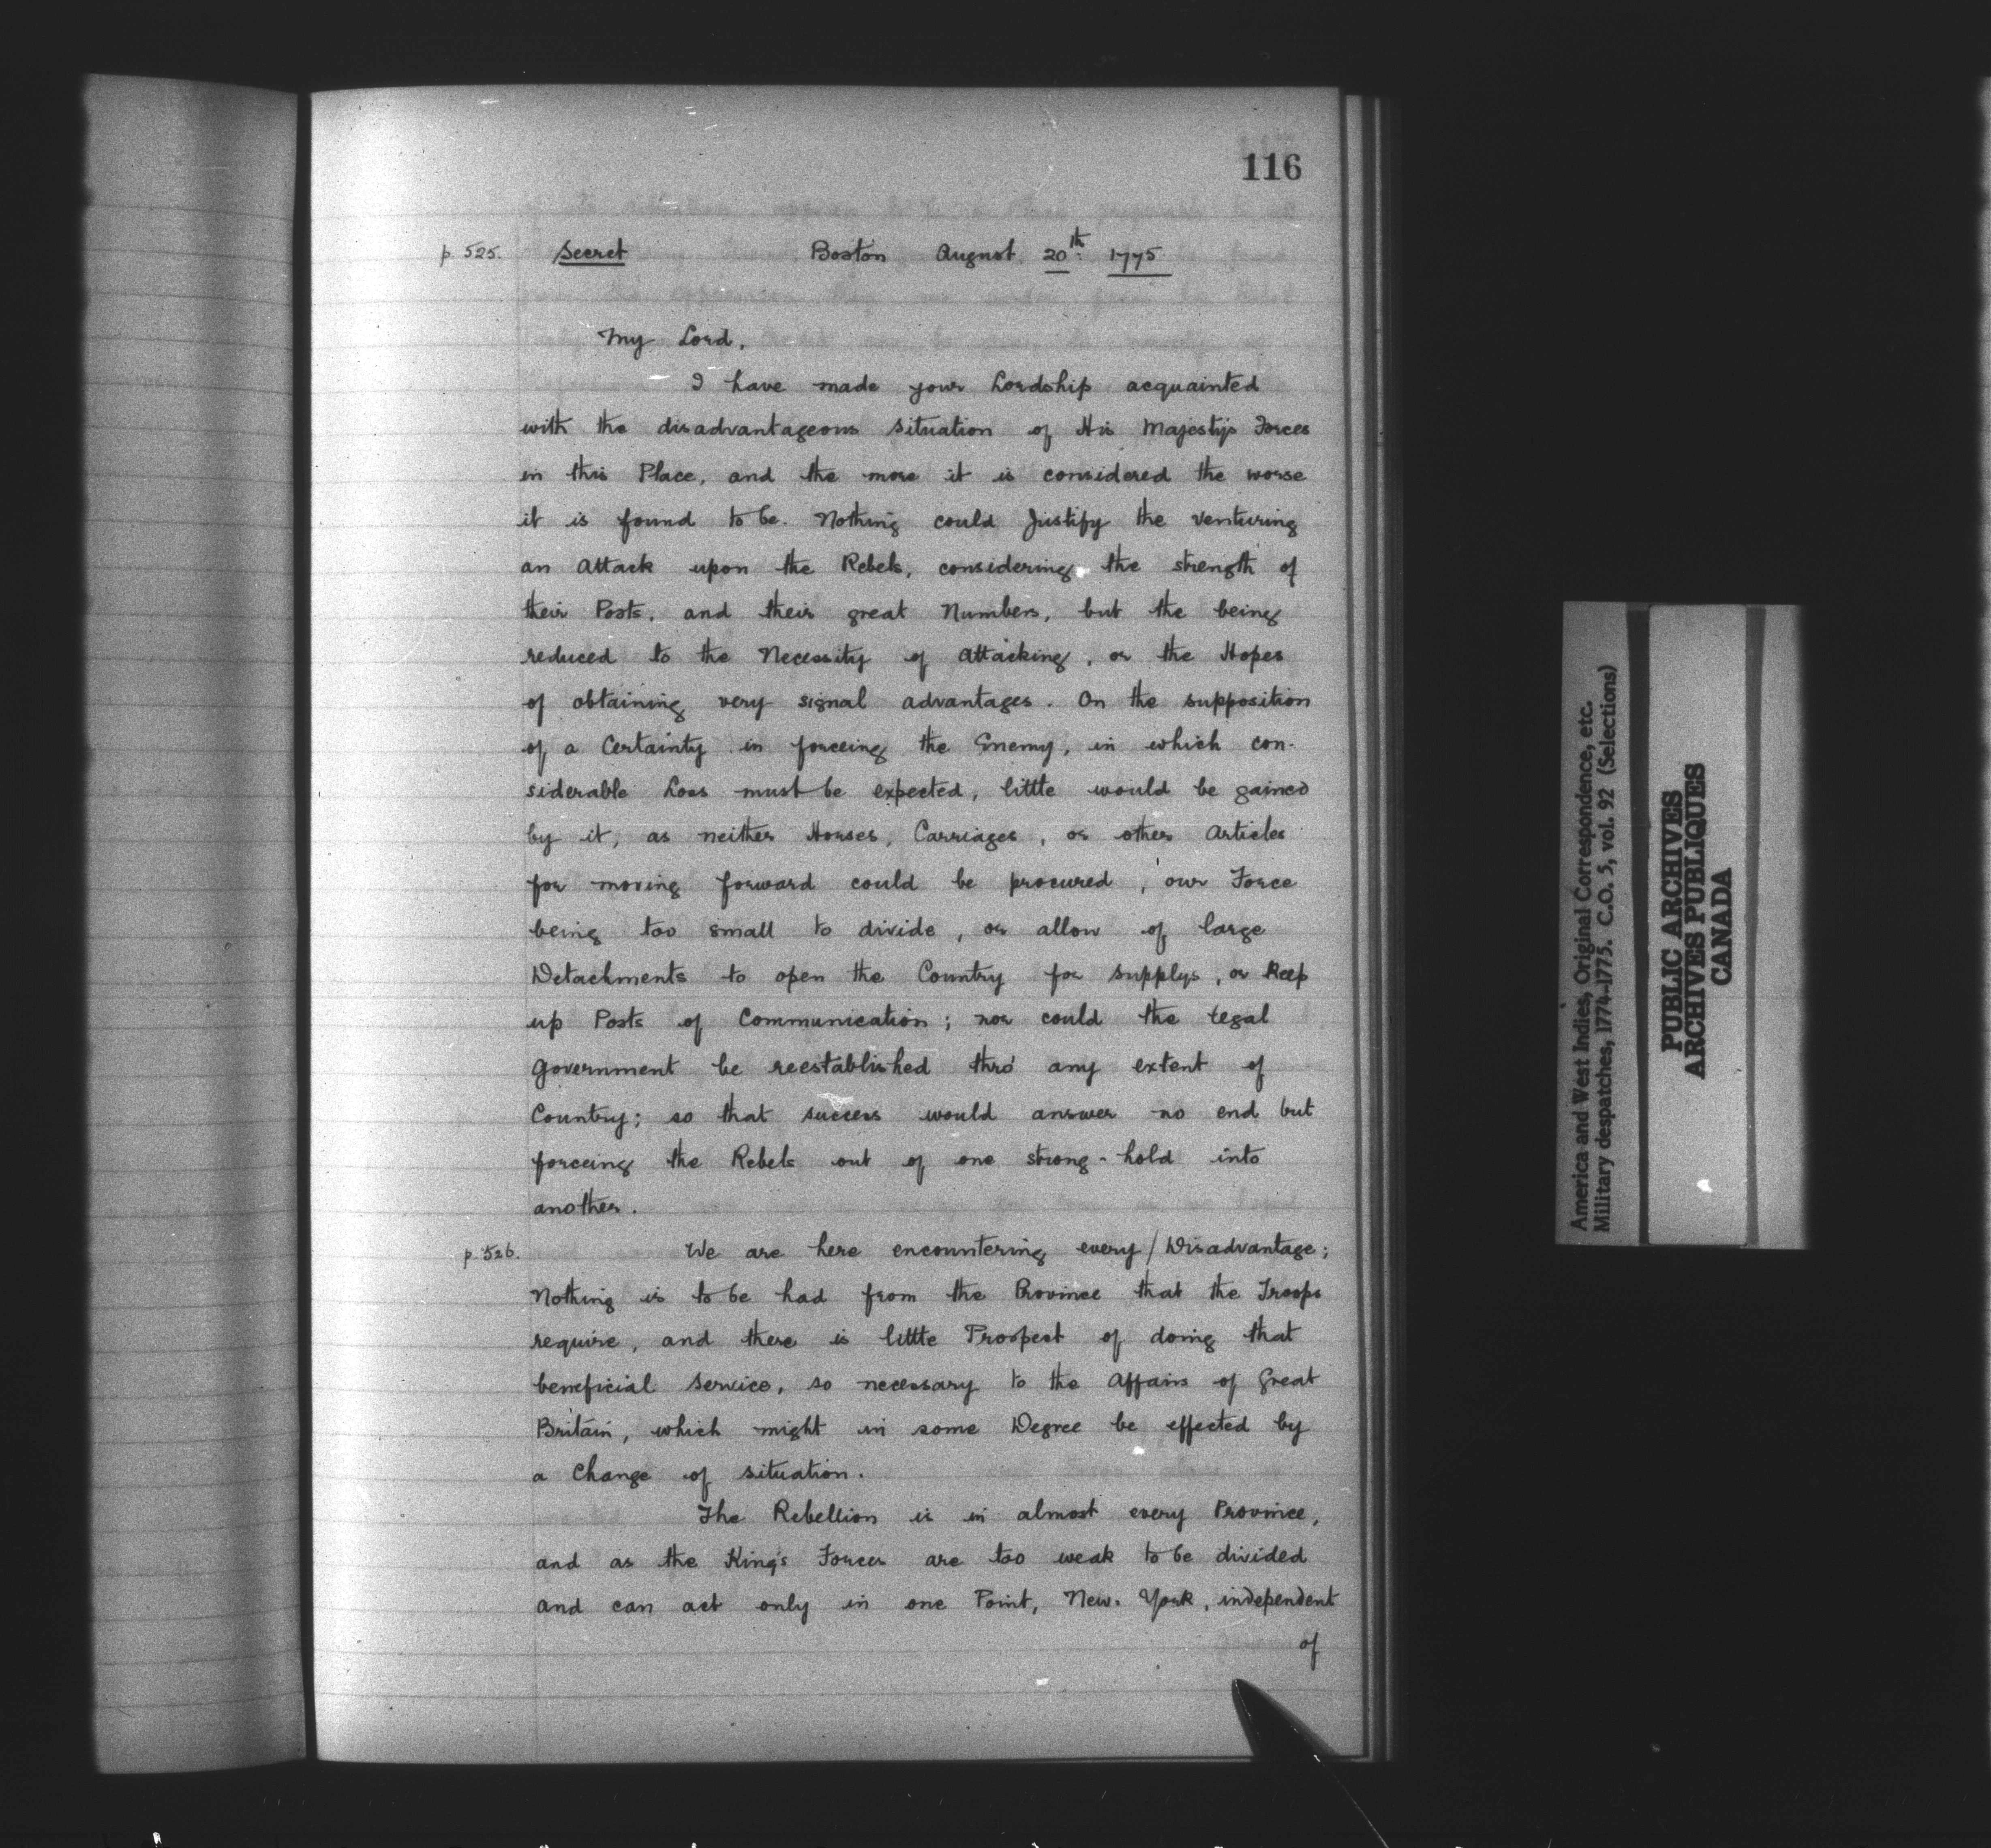 116
p. 525. Secret Boston August 20th 1775
My Lord,
I have made your Lordship acquainted
with the disadvantageous situation of His Majesty's Forces
in this Place, and the more it is considered the worse
it is found to be. Nothing could Justify the venturing
an Attack upon the Rebels, considering the strength of
their Posts, and their great Numbers, but the being
reduced to the Necessity of attacking, or the Hopes
of obtaining very signal advantages. On the supposition
of a Certainty in forceing the Enemy, in which con-
siderable Loss must be expected, little would be gained
by it, as neither Horses, Carriages, or other Articles
for moving forward could be procured, our Force
being too small to divide, or allow of large
Detachments to open the Country for supplys, or keep
up Posts of Communication; nor could the legal
Government be reestablished thro' any extent of
Country; so that success would answer no end but
forceing the Rebels out of one strong-hold into
another.
p. 526. We are here encountering every / Disadvantage;
Nothing is to be had from the Province that the Troops
require, and there is little Prospect of doing that
beneficial Service, so necessary to the Affairs of Great
Britain, which might in some Degree be effected by
a Change of situation.
The Rebellion is in almost every Province,
and as the King's Forces are too weak to be divided
and can act only in one Point, New-York, independent
of
America and West Indies, Original Correspondence, etc.
Military despatches, 1774-1775. C.O. 5, vol. 92 (Selections)
PUBLIC ARCHIVES
ARCHIVES PUBLIQUES
CANADA